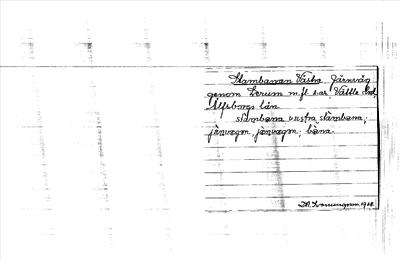 Stambanan Västra. Järnväg
genom Lerum m.fl. s:ar, Vättle hd,
Älfsborgs län
stàmbana västra stàmbana;
järvagm, jànvagm; bàna
1908